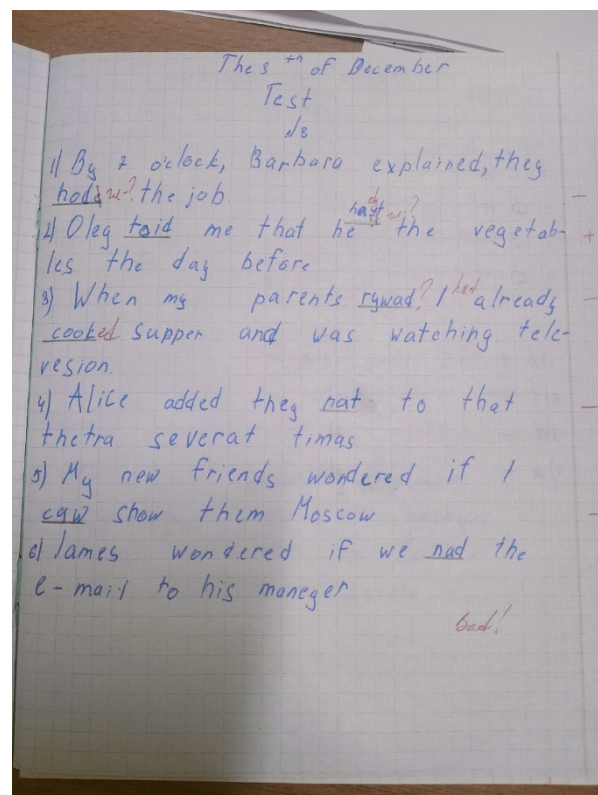 The 5 th of December
Test
№8
1) By 7 o'clock, Barbara explained, they
hodi те-? the job
2) Oleg taid me that he hayt the vegetab-
les the day before
3) When my parents rywad? I had already
cooked supper and was watching tele-
vesion.
4) Alice added they nat to that
thetra severat timas
5) My new friends wondered if I
caw show them Moscow
6) James wondered if we nad the
e-mail to his maneger
bad!